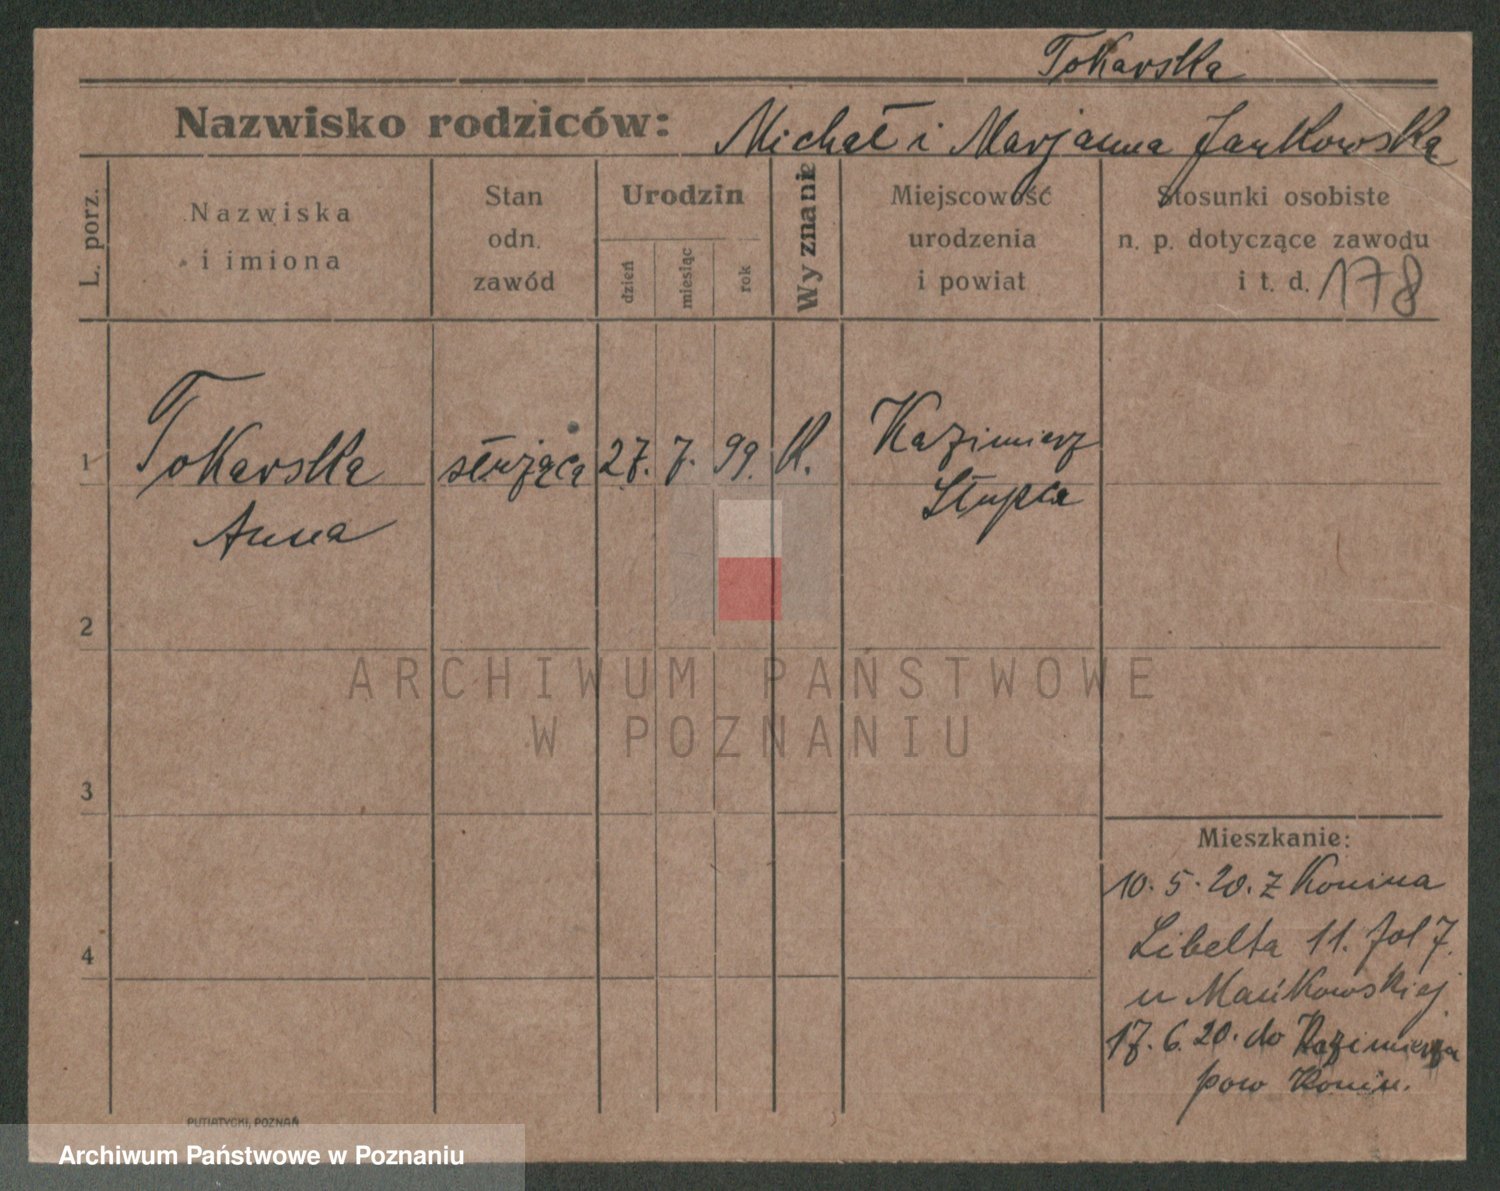 Tokarska
Nazwisko rodziców: Michał i Marjanna Jankowska
L. porz.
Nazwiska
i imiona
Stan
odn.
zawód
Urodzin
dzień
miesiąc
rok
Wyznanie
Miejscowość
urodzenia
i powiat
Stosunki osobiste
n. p. dotyczące zawodu
i t. d. 178
1 Tokarska służąca 27. 7. 99. k. Kazimierz
Anna Słupca
2
3
4
Mieszkanie:
10. 5. 20. z Konina
Libelta 11. fol 7.
u Mańkowskiej
17. 6. 20. do Kazimierza
pow Konin.
PUTIATYCKI, POZNAŃ
ARCHIWUM PAŃSTWOWE
W POZNANIU
Archiwum Państwowe w Poznaniu